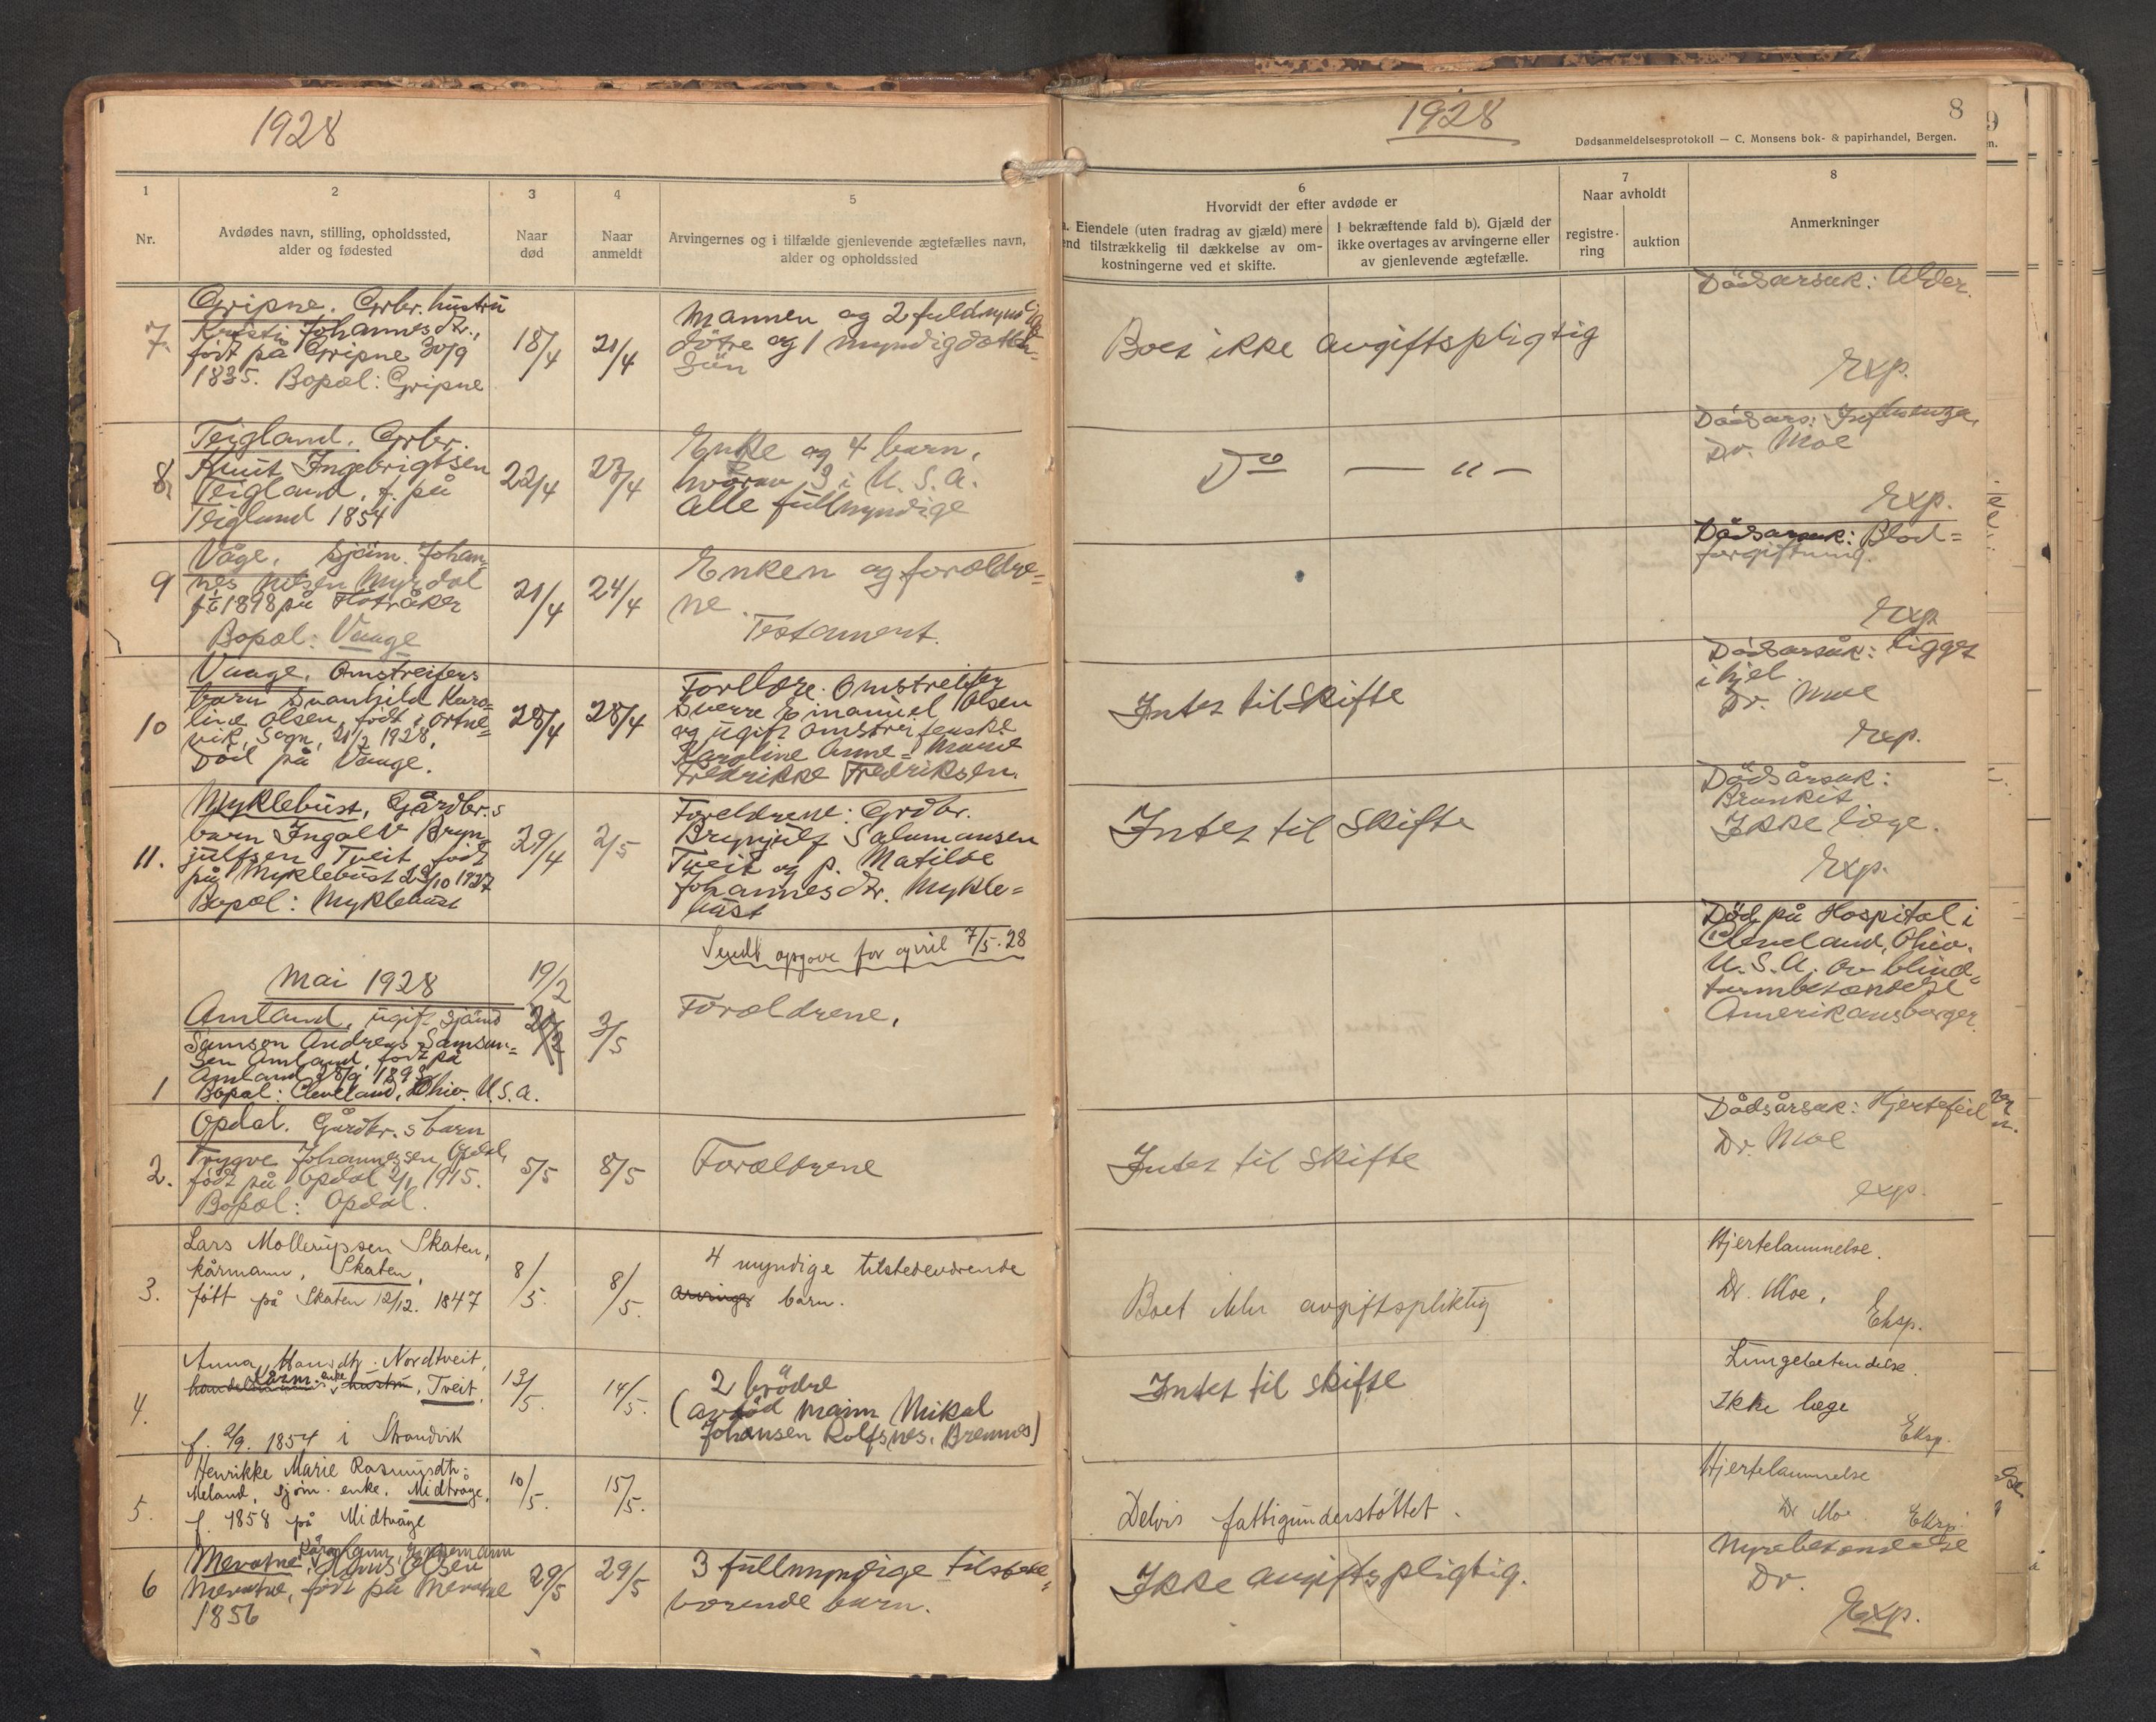 1928
1
2
3
4
5
Nr.
Avdødes navn, stilling, opholdssted,
alder og fødested
Naar
død
Naar
anmeldt
Arvingernes og i tilfælde gjenlevende ægtefælles navn,
alder og opholdssted
7.
Gripne. Grbr. hustru
Kristi Johannesdtr.,
født på Gripne 30/9
1835. Bopæl: Gripne
18/4
21/4
Mannen og 2 fuldmyndige
døtre og 1 myndig datter-
sün
8.
Teigland. Grbr.
Knut Ingebrigtsen
Teigland. f. på
Teigland 1854
22/4
23/4
Enke og 4 barn,
hvorav 3 i U. S. A.
Alle fullmyndige
9
Våge. Sjøm. Johan-
nes Nilsen Myrdal
1898 på Flotråker
Bopæl: Vaage
21/4
24/4
Enken og forældre-
ne.
Testament.
10
Vaage. Omstreifers
barn Svanhild Karo-
line Olsen, født i Ortne-
vik, Sogn, 21/2 1928.
Død på Vaage.
28/4
28/4
Foreldre. Omstreifer
Sverre Emanuel Olsen
og ugift omstreiferske
Karoline Anne-Marie
Fredrikke Fredriksen.
11.
Myklebust, Gårdbr.s
barn Ingolv Bryn-
julfsen Tveit, født
på Myklebust 23/10 1927
Bopæl: Myklebust
29/4
2/5
Foreldrene: Grdbr.
Brynjulf Salamonsen
Tveit og p. Matilde
Johannesdtr. Mykle-
bust
Sendt opgave for april 7/5.28
Mai 1928
1
Amland, ugift sjømd
Samson Andreas Samson-
sen Amland, født på
Amland 28/9 1893
Bopæl: Cleveland, Ohio. U.S.a.
19/2
3/5
Forældrene,
2.
Opdal. Gårdbr.s barn
Trygve Johannessen Opdal,
født på Opdal 2/1 1915.
Bopæl: Opdal.
5/5
8/5
Forældrene
3.
Lars Mollerupsen Skaten,
kårmann, Skaten,
født på Skaten 12/12. 1847
8/5.
8/5.
4 myndige tilstedeværende
arvinger barn.
4.
Anna Hansdtr. Nordtveit,
kårm. enke
hustru, Tveit.
f. 2/9. 1854 i Strandvik
13/5.
14/5.
2 brødre
(avdød mann Mikal
Johansen Rolfsnes. Bremnes)
5.
Henrikke Marie Rasmusdtr.
Meland, sjøm. enke. Midtvåge.
f. 1858 på Midtvåge
10/5.
15/5.
6
Mevatne.
Mevatne, født på Mevatne
1856
29/5
29/5
3 fullmyndige tilstede-
værende barn.
1928
8
Dødsanmeldelsesprotokoll — C. Monsens bok- & papirhandel, Bergen.
6
Hvorvidt der efter avdøde er
a. Eiendele (uten fradrag av gjæld) mere
end tilstrækkelig til dækkelse av om-
kostningerne ved et skifte.
I bekræftende fald b). Gjæld der
ikke overtages av arvingerne eller
av gjenlevende ægtefælle.
7
Naar avholdt
registre-
ring
auktion
8
Anmerkninger
Boet ikke avgiftspligtig
Dødsarsak: Alder.
Exp.
Do — " —
Dødsårs: Influenza,
Dr. Moe
Exp.
Dødsarsak: Blod-
forgiftning.
Exp
Intet til skifte
Dødsarsak: ligget
ihjel.
Dr. Moe
Exp.
Intet til skifte
Dødsårsak:
Bronkit
Ikke læge.
Exp.
Død på Hospital i
Cleveland, Ohio.
U.S.A. av blind-
tarmbetændelse
Amerikansborger.
Intet til skifte
Dødsårsak: Hjertefeil
Dr. Moe
exp.
Boet ikke avgiftspliktig
Hjertelammelse.
Dr. Moe,
Eksp.
Intet til skifte
Lungebetendelse.
Ikke læge
Eksp.
Delvis fattigunderstøttet.
Hjertelammelse
Dr Moe.
Eksp.
Ikke avgiftspligtig.
Nyrebetændelse
Dr.
Exp.